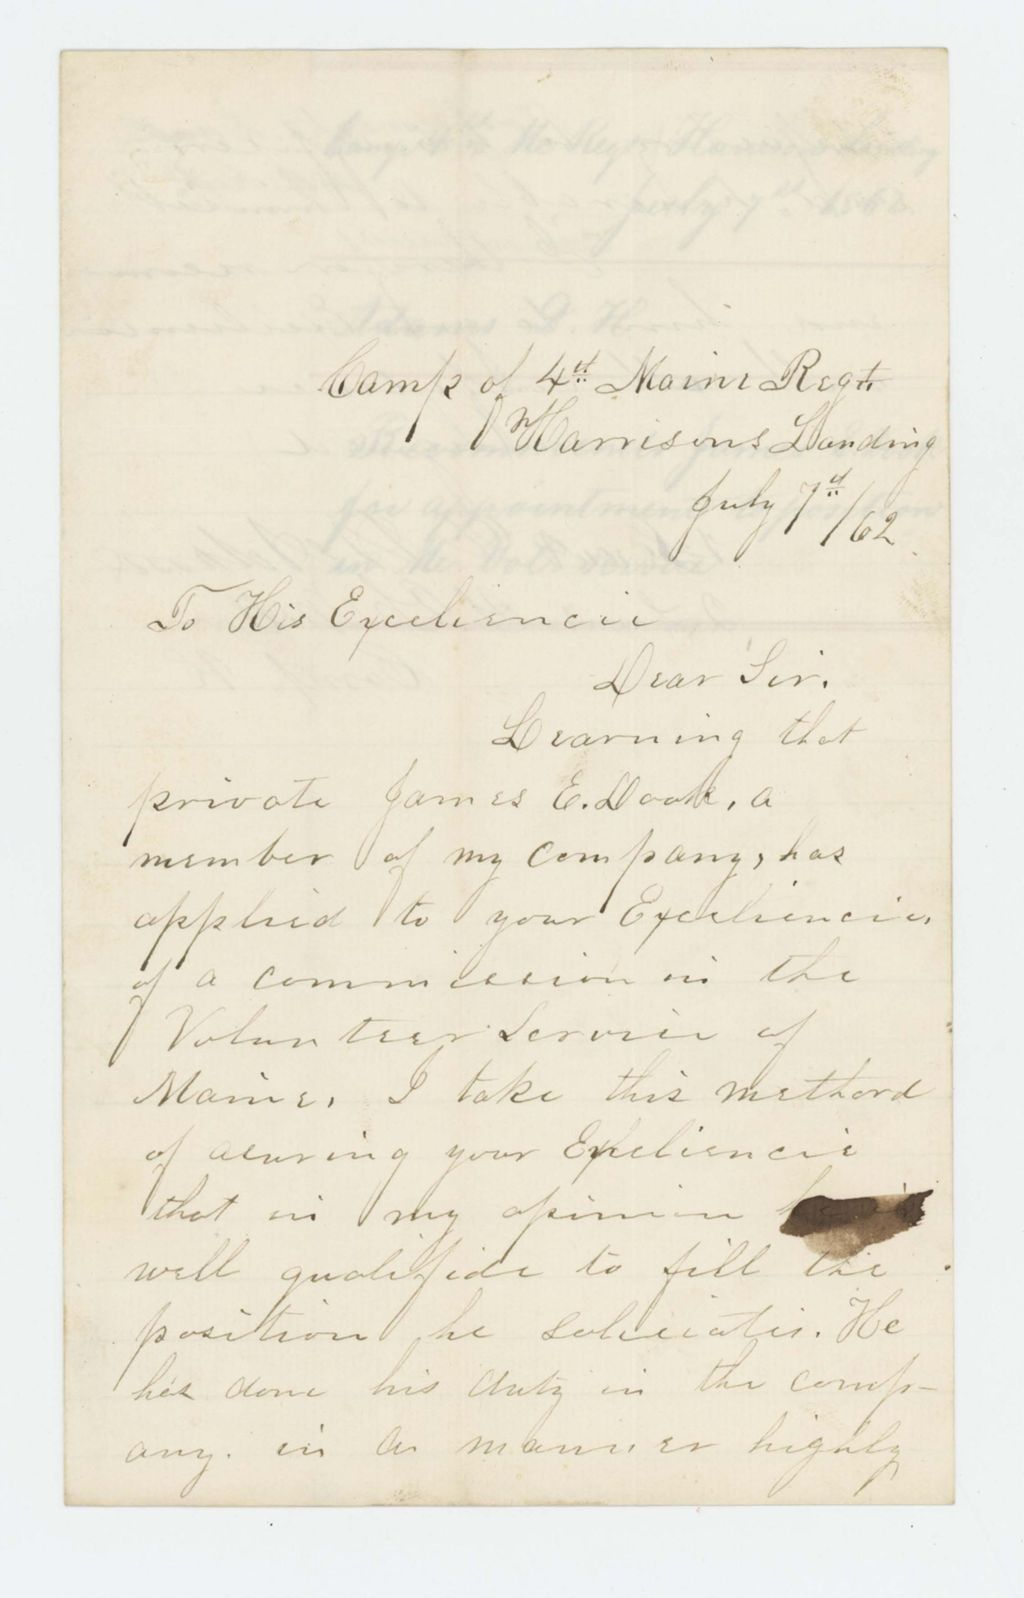 Camp of 4th Maine Regt
Harrisons Landing
July 7th /62
To His Exceliencie
Dear Sir.
Learning that
private James E. Doak, a
member of my company, has
applied to your Exceliencie,
of a commission in the
Volunteer Service of
Maine, I take this methord
of asuring your Exceliencie
that in my opinion he is
well qualifide to fill the
position he soliciatis. He
has done his duty in the comp-
any. in a manner highly